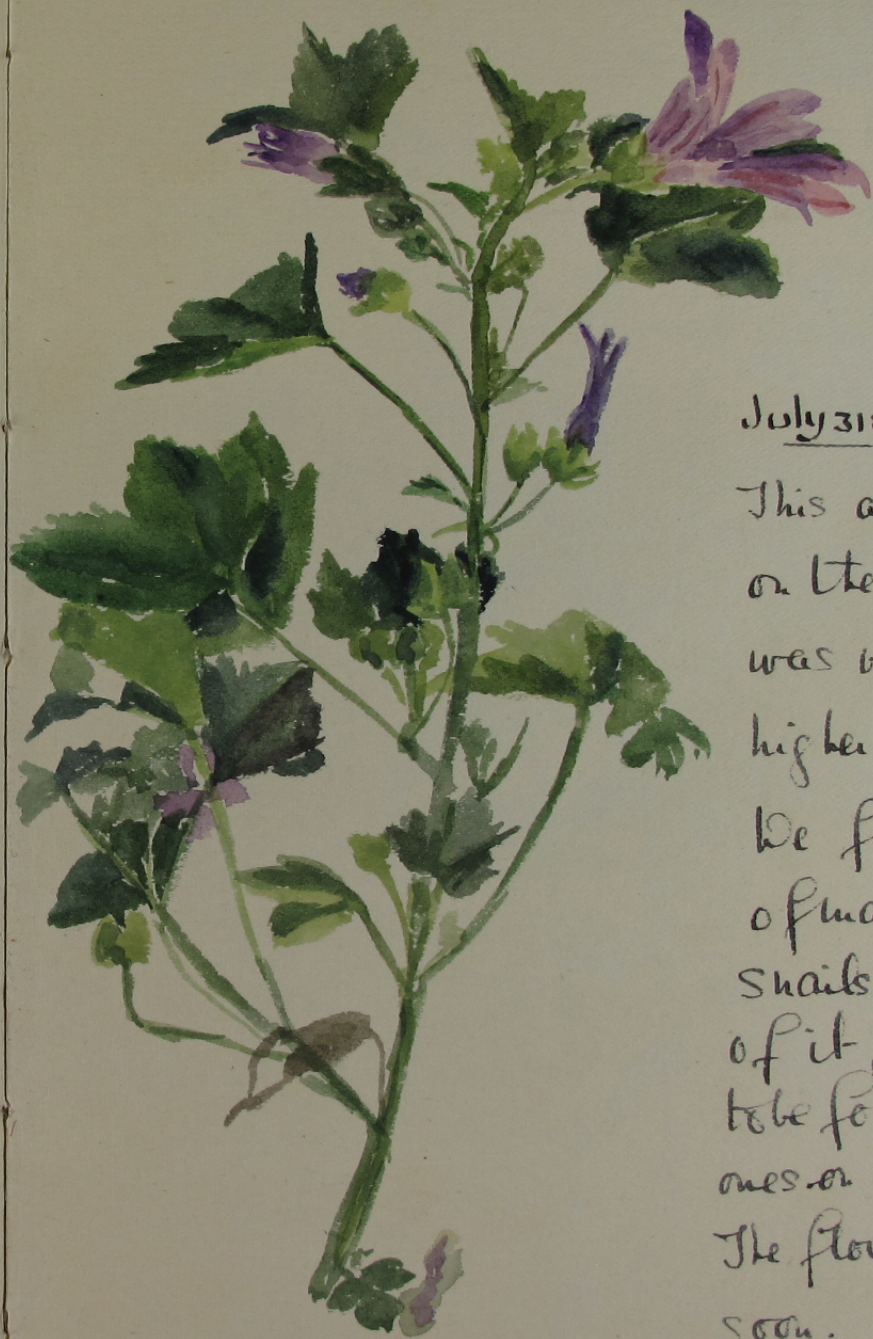 July 31
This a
on the
was
higher
We f
of ma
snails
of it
to be fo
ones on
The flow
soon.